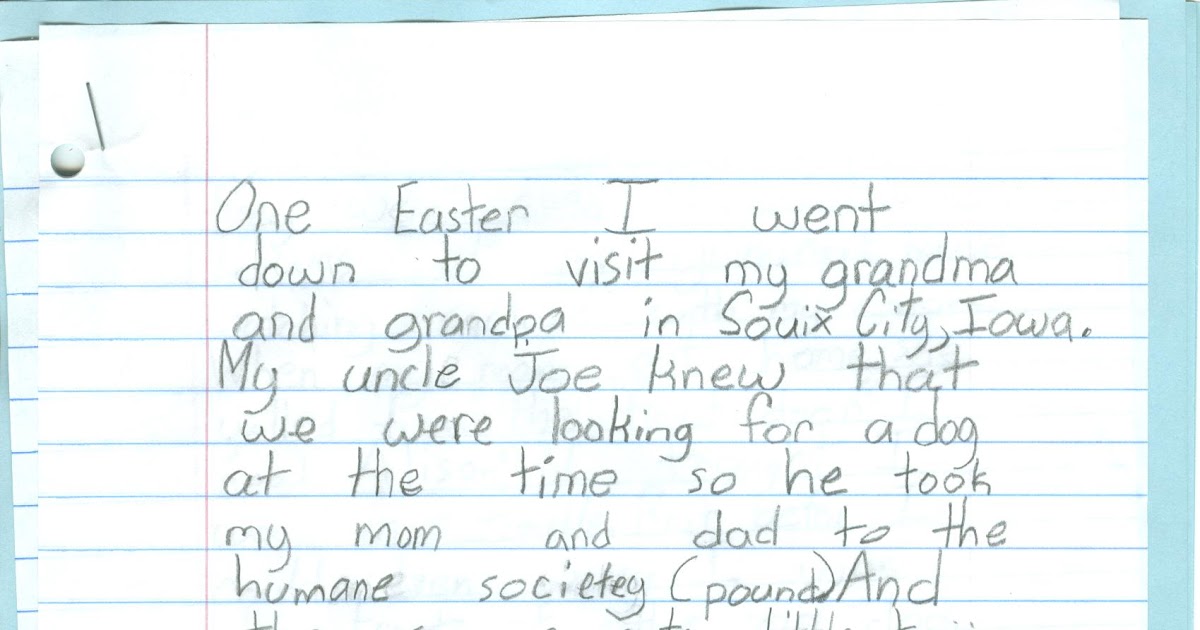 One Easter I went
down to visit my grandma
and grandpa in Souix City, Iowa.
My uncle Joe knew that
we were looking for a dog
at the time so he took
my mom and dad to the
humane societey (pound) And